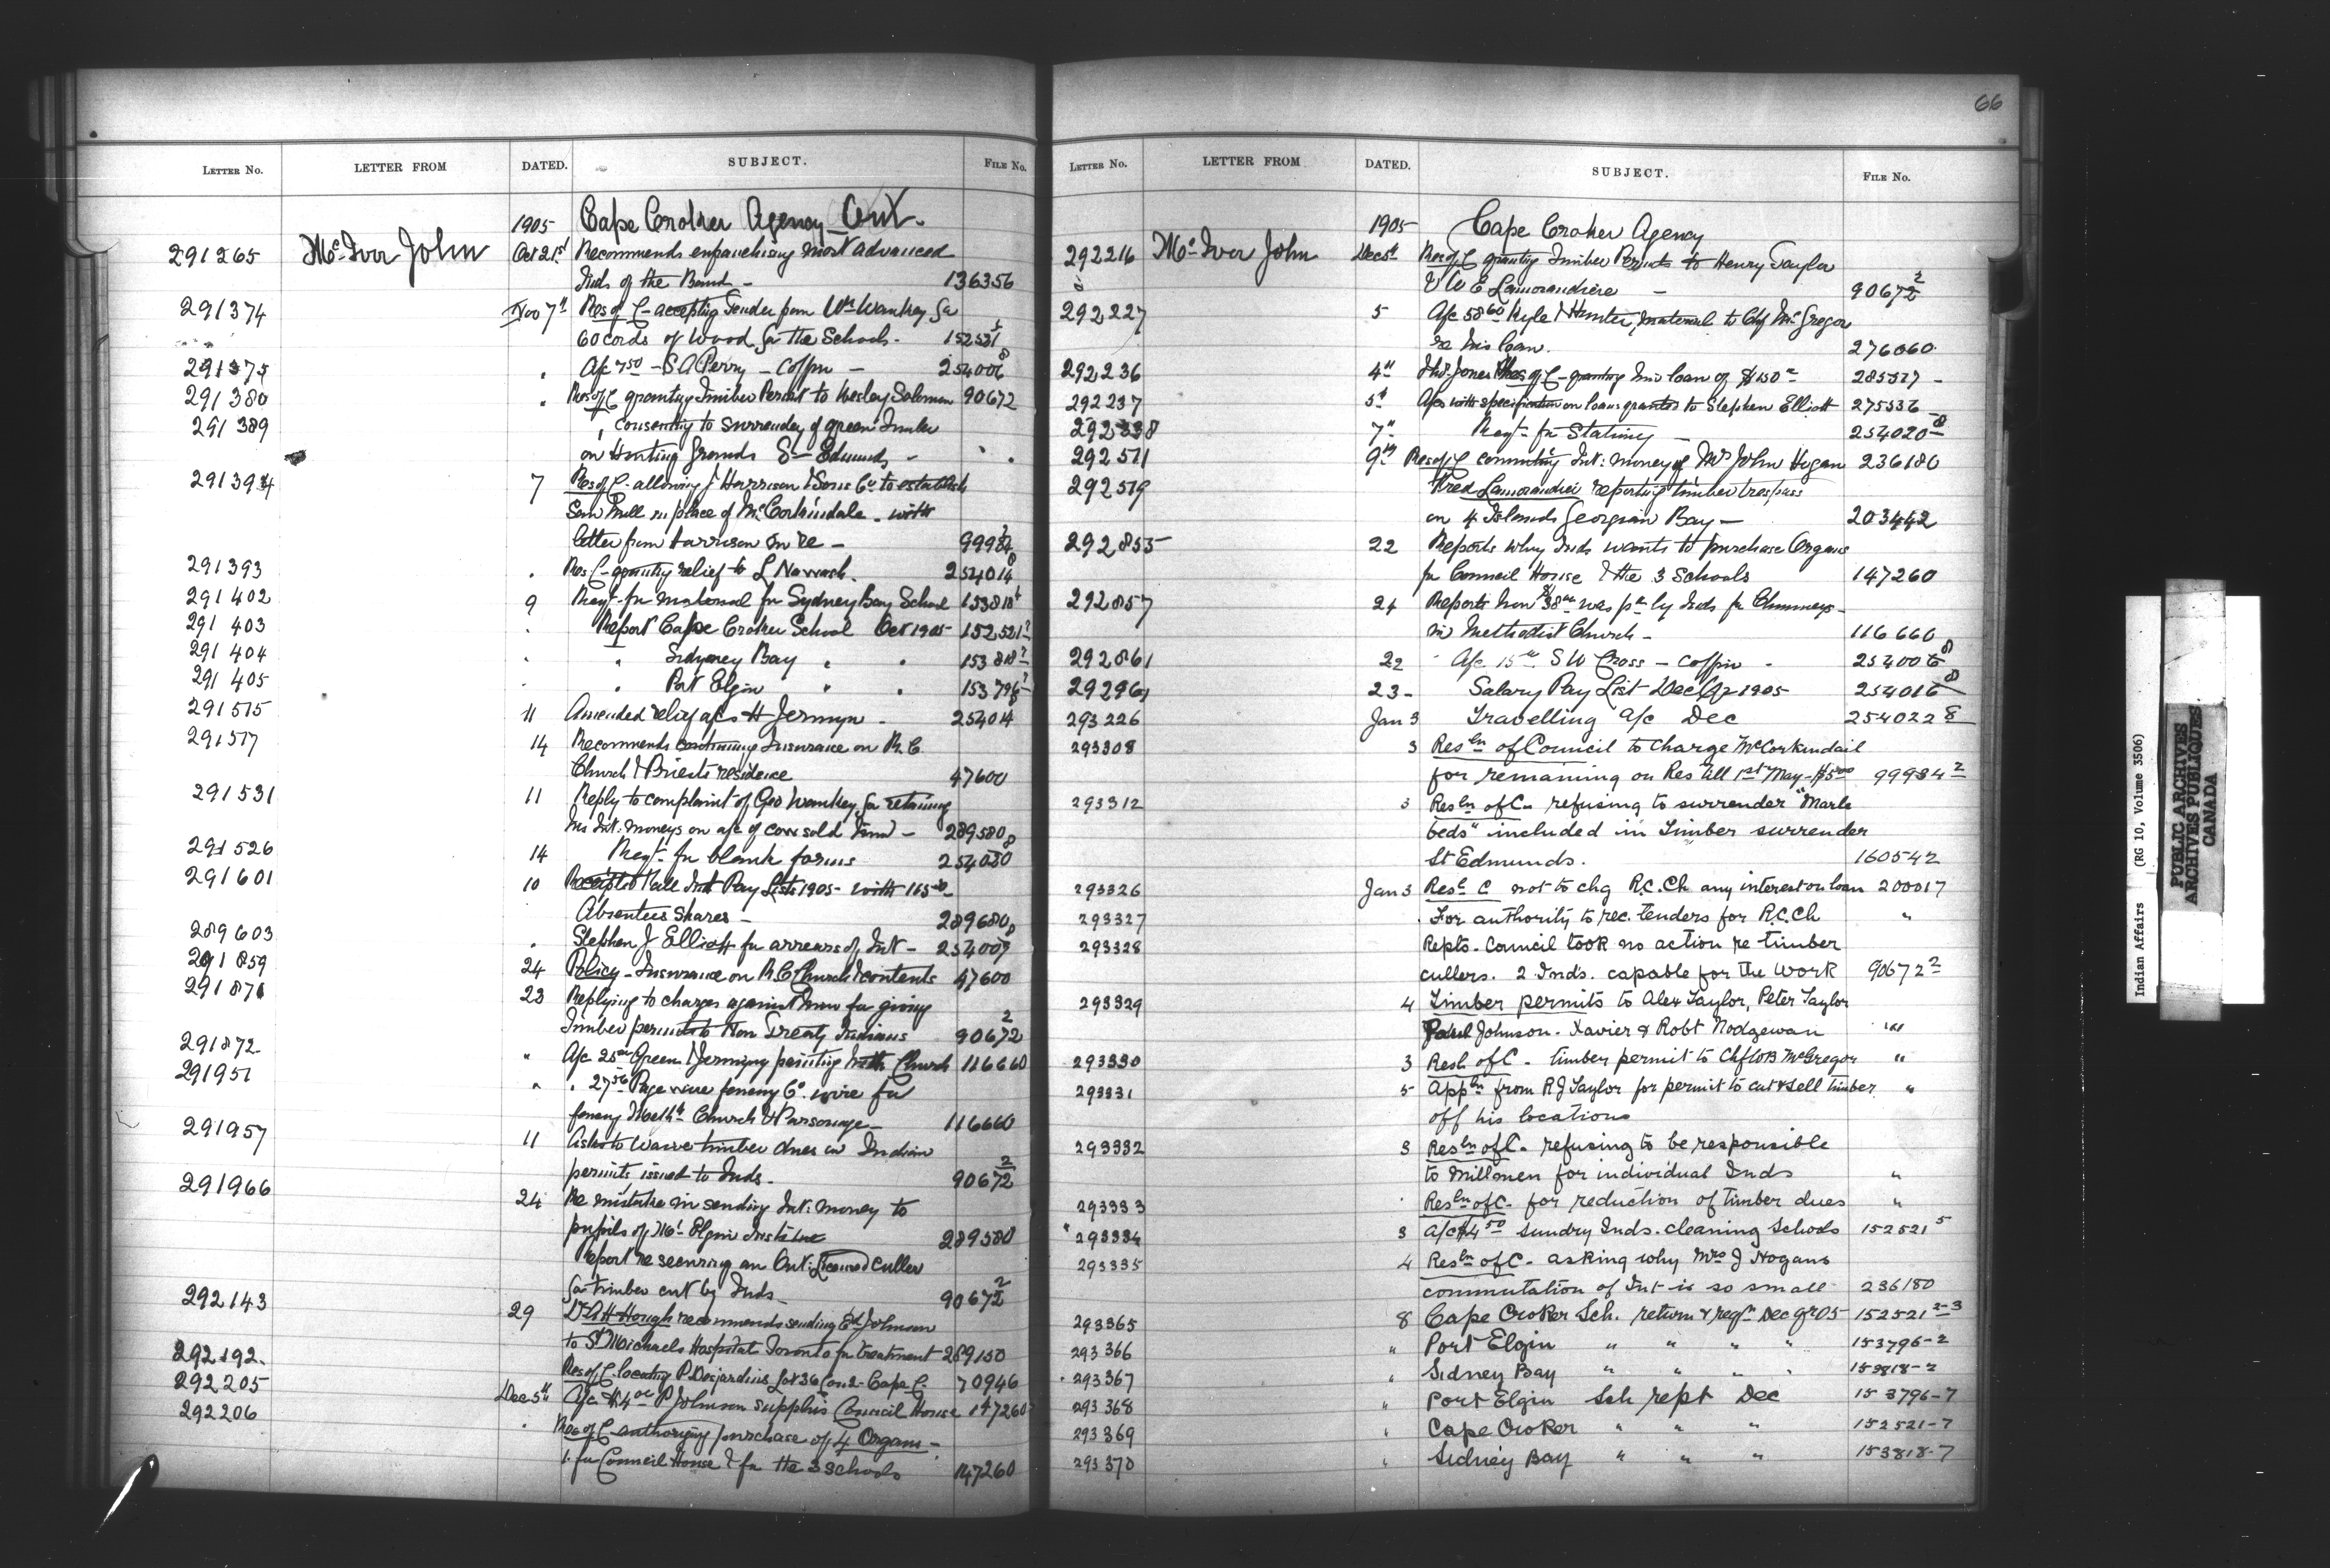 LETTER NO. LETTER FROM DATED. SUBJECT. FILE NO.
1905 Cape Croker Agency Ont.
291265 McIver John Oct 21st Recommends enfranchising most advanced
Inds of the Band - 136356
291374 Nov 7th Res of C - accepting Tender from Wm Wankey for
60 cords of Wood for the Schools - 152521 5
291375 " A/c 7.50 - S A Perry - Coffin - 254006 8
291380 " Res of C granting Timber Permit to Wesley Solomon 90672
291389 " consenting to surrender of green Timber
on Hunting Grounds St Edmunds - " "
291394 7 Res of C - allowing J Harrison & Sons Co to establish
Saw Mill in place of McCorkindale - with
letter from Harrison in re - 99984 2
291393 " Res C - granting relief to L Nawash. 254014 8
291402 9 Reqt - for material for Sydney Bay School 153818 4
291403 " Report Cape Croker School Oct 1905 - 152521 7
291404 " " Sidyney Bay " " 153818 7
291405 " " Port Elgin " " 153796 7
291515 11 Amended relief a/cs H Jermyn - 254014
291517 14 Recommends continuing Insurance on R.C.
Church & Priests residence 47600
291531 11 Reply to complaint of Geo Wankey for retaining
his Int: moneys on a/c of cow sold him - 289580
291526 14 Reqt - for blank forms 254030 8
291601 10 Receipted Fall Int Pay Lists 1905 - with 165
Absentees shares - 289680
289603 " Stephen J Elliott for arrears of Int - 254009 8
291859 24 Policy - Insurance on R.C. Church & contents 47600
291871 23 Replying to charges against him for giving
Timber permits to Non Treaty Indians 90672 2
291872 " A/c 25.00 Green & Jermyn painting Meth Church 116660
291951 " " 27.56 Page wire fencing Co. wire for
fencing Methh Church & Parsonage - 116660
291957 11 Asks to waive timber dues on Indian
permits issued to Inds. 90672 2
291966 24 Re mistake in sending Int: money to
pupils of Mt Elgin Institute 289580
Report re securing an Ont: Licensed culler
for timber cut by Inds 90672 2
292143 29 Dr A H Hough recommends sending Ed Johnson
to St Michaels Hospital Toronto for treatment 289150
292192 Res of C - locating P. Desjardins Lot 36 Con 2 - Cape C. 70946
292205 Dec 5th A/c $4.00 P Johnson supplies Council House 147260
292206 " Res of C - authorizing purchase of 4 Organs -
1 for Council House & for the 3 Schools 147260
66
LETTER NO. LETTER FROM DATED. SUBJECT. FILE NO.
1905 Cape Croker Agency
292216 McIver John Dec 5th Res of C granting Timber Permits to Henry Taylor
& W E Lamorandiere - 90672 2
292227 5 A/c 58.60 Kyle & Hunter, material to Chf McGregor
re his loan. 276060
292236 4th Thos Jones Res of C - granting him loan of $150.00 285517 -
292237 5th A/cs with specification on loans granted to Stephen Elliott 275336
292338 7th Reqt - for Stationery - 254020 8
292511 9th Res of C commuting Int: money of Mrs John Hogan 236180
292519 Fred Lamorandiei reporting timber trespass
on 4 Islands Georgian Bay - 203442
292855 22 Reports why Inds wants to purchase Organs
for Council House & the 3 Schools 147260
292857 24 Reports how $38.00 was pd by Inds for Chimneys -
in Methodist Church - 116660
292861 22 A/c 15.00 S W Cross - Coffin - 254006 8
292964 23 - Salary Pay List - Dec Qr 1905 - 254016 8
293226 Jan 3 Travelling a/c Dec 254022 8
293308 3 Resln of Council to charge McCorkindail
for remaining on Res till 1st May - $5.00 99984 2
293312 3 Resln of C - refusing to surrender "Marle
beds" included in Timber surrender
St Edmunds. 160542
293326 Jan 3 Resln C not to chg R.C. Ch any interest on loan 200017
293327 " For authority to rec. tenders for R.C. Ch "
293328 Repts - Council took no action re timber
cullers. 2 Inds. capable for the work 90672 2
293329 4 Timber permits to Alex Taylor, Peter Taylor
Paul Johnson - Xavier & Robt Nodgewan "
293330 3 Resln of C - timber permit to Chf W B McGregor "
293331 5 Appln from R J Taylor for permit to cut & sell timber "
off his locations
293332 3 Resln of C - refusing to be responsible
to millmen for individual Inds "
293333 " Resln of C - for reduction of timber dues "
293334 3 a/c $4.50 sundry Inds - cleaning Schools 152521 5
293335 4 Resln of C - asking why Mrs J Hogans
commutation of Int - is so small - 236180
293365 8 Cape Croker Sch. return & reqn Dec qr 05 152521 2-3
293366 " Port Elgin " " " " 153796-2
293367 " Sidney Bay " " " " 153818-2
293368 " Port Elgin Sch rept Dec 153796-7
293369 " Cape Croker " " " 152521-7
293370 " Sidney Bay " " " 153818-7
Indian Affairs (RG 10, Volume 3506)
PUBLIC ARCHIVES
ARCHIVES PUBLIQUES
CANADA